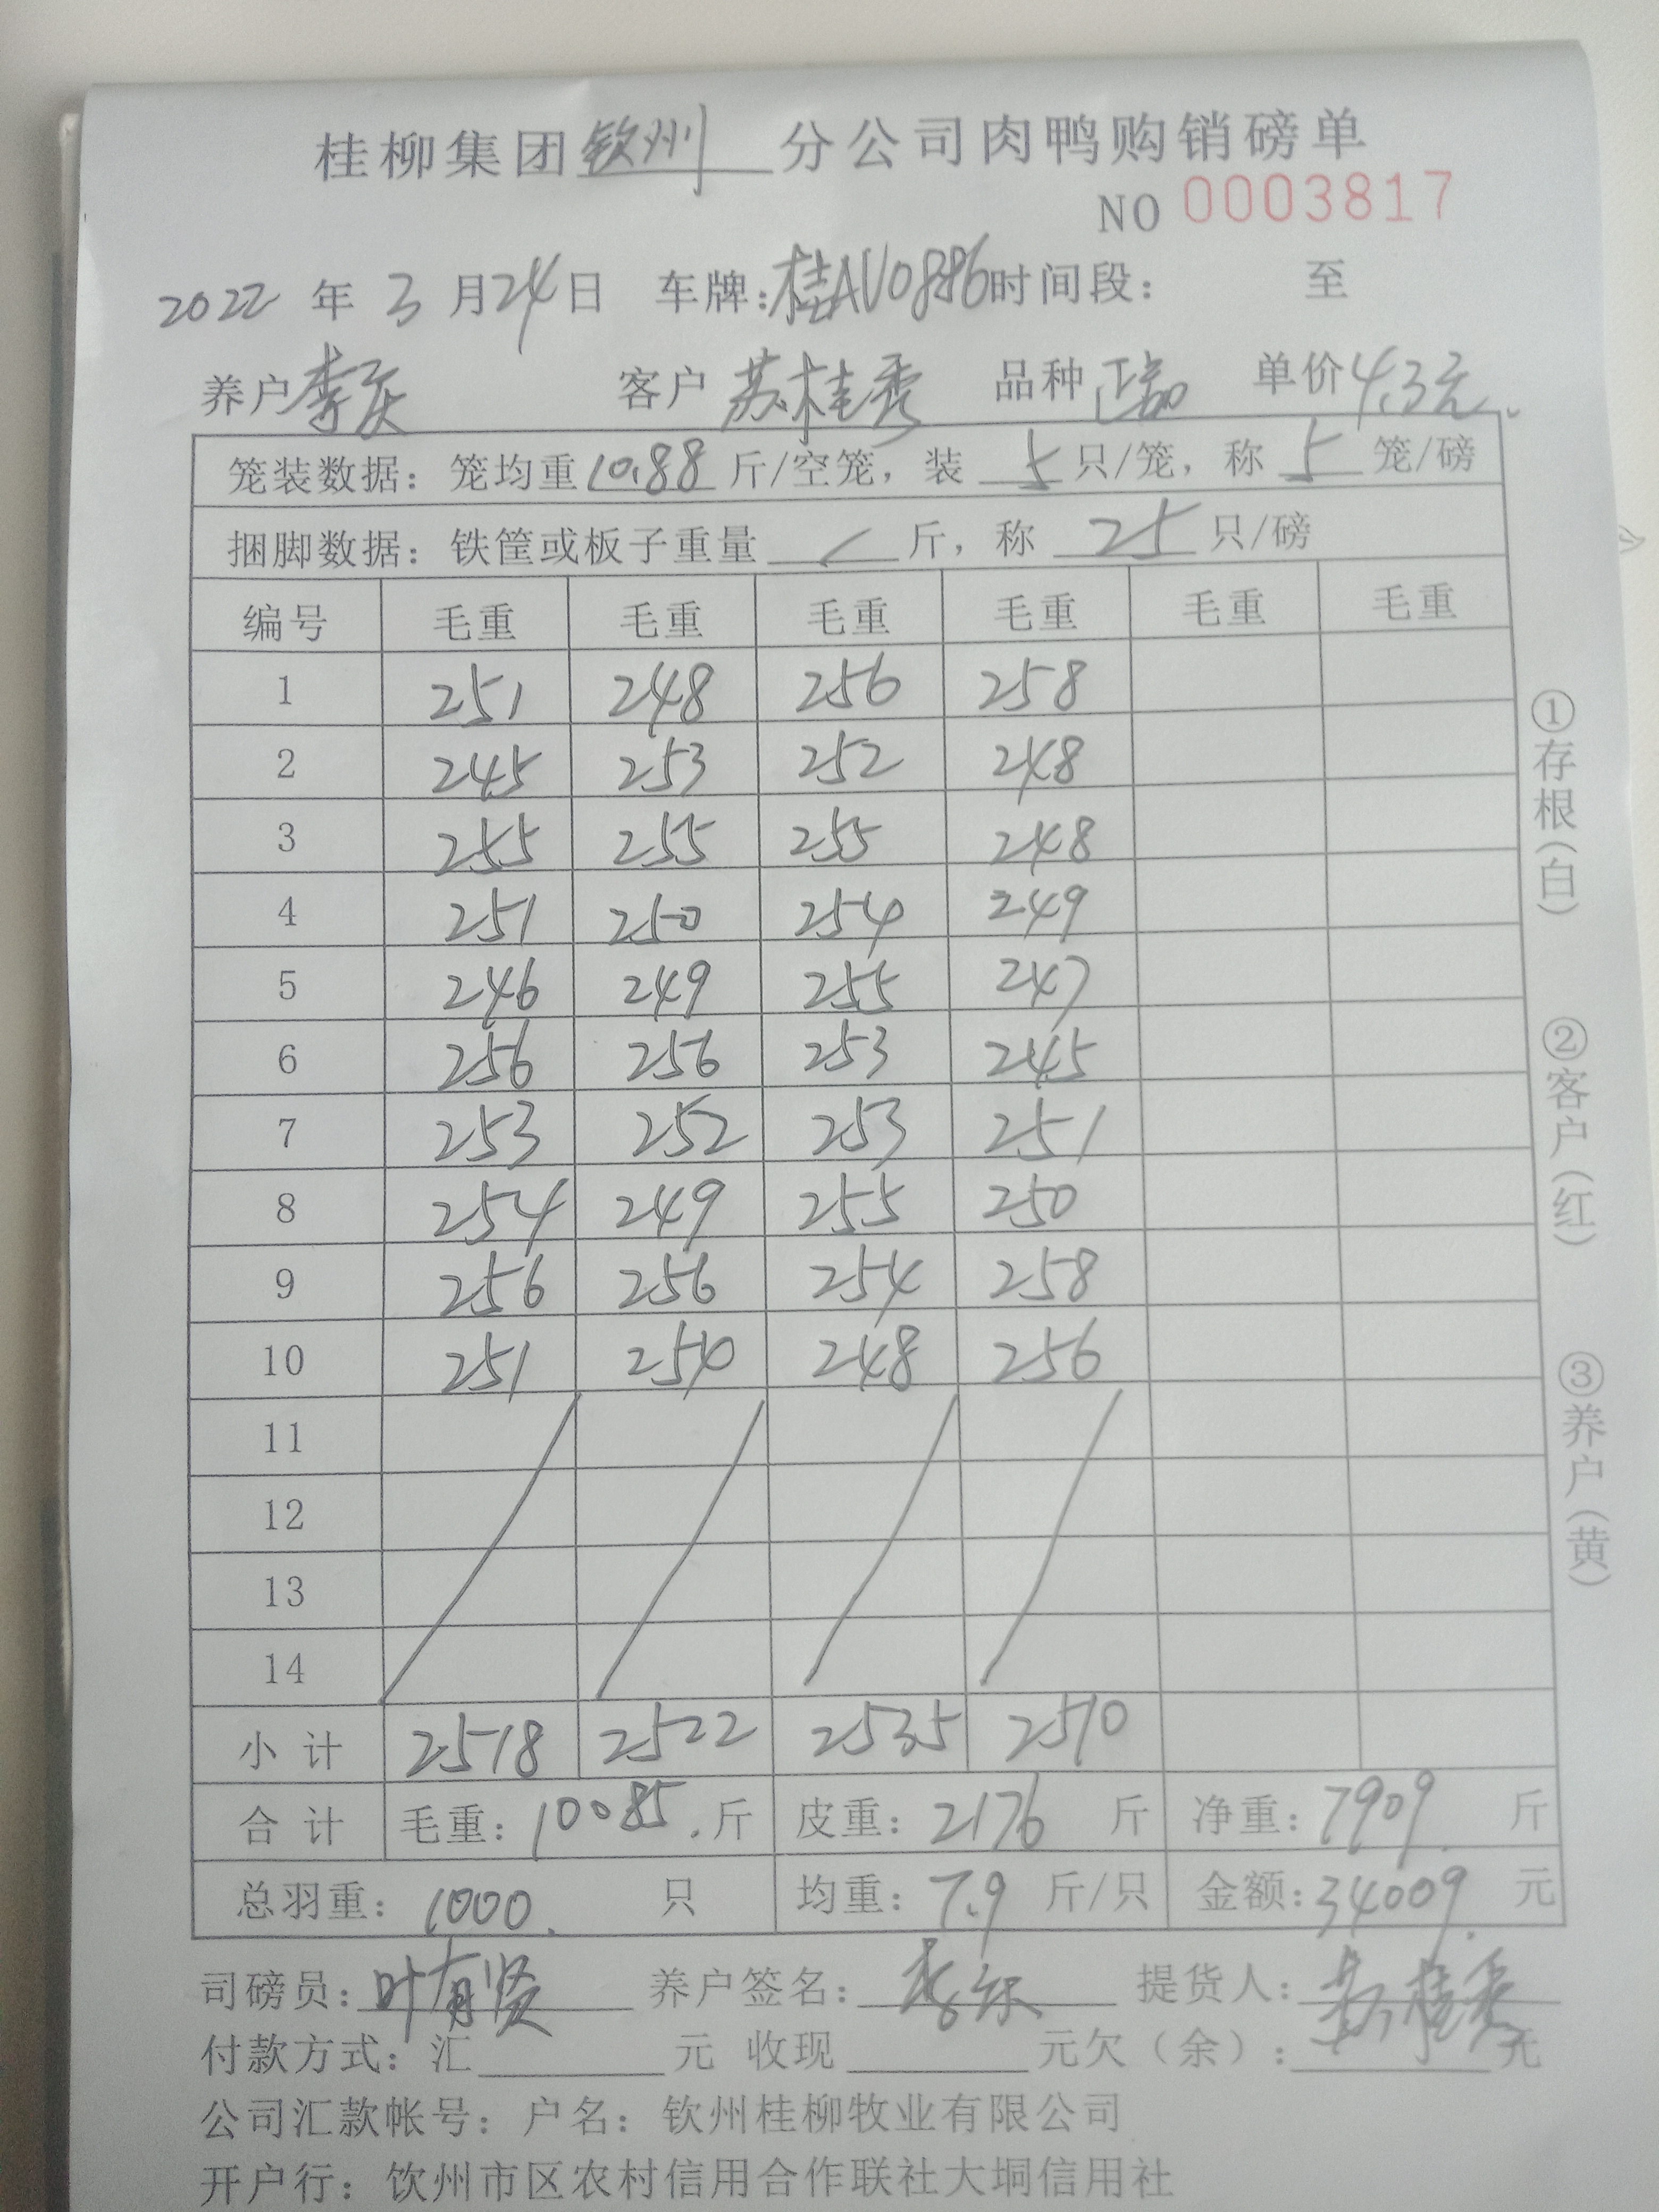 桂柳集团钦州分公司肉鸭购销磅单
NO 0003817
2022年3月24日 车牌:桂AV0886时间段: 至
养户李庆 客户苏桂秀 品种 单价4.3元
笼装数据: 笼均重10.88斤/空笼, 装5只/笼, 称5笼/磅
捆脚数据: 铁筐或板子重量 / 斤, 称25只/磅
编号 毛重 毛重 毛重 毛重 毛重 毛重
1 251 248 256 258
2 245 253 252 248
3 255 255 255 248
4 251 250 254 249
5 246 249 255 247
6 256 256 253 245
7 253 252 253 251
8 254 249 255 250
9 256 256 254 258
10 251 254 248 256
11
12
13
14
小计 2518 2522 2535 2510
合计 毛重: 10085.斤 皮重: 2176 斤 净重: 7909 斤
总羽重: 1000. 只 均重: 7.9 斤/只 金额: 34009. 元
司磅员: 叶有贤 养户签名: 提货人: 苏桂秀
付款方式: 汇 元 收现 元欠(余): 元
公司汇款帐号: 户名: 钦州桂柳牧业有限公司
开户行: 钦州市区农村信用合作联社大垌信用社
①存根(白) ②客户(红) ③养户(黄)